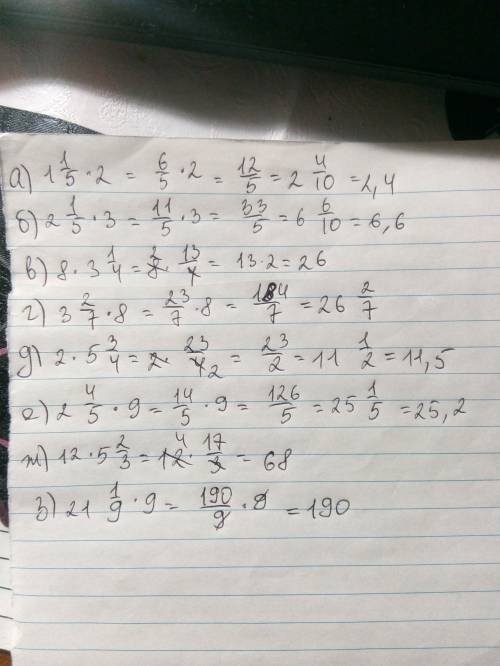 а) 1 1/5 · 2 = 6/5 · 2 = 12/5 = 2 4/10 = 2,4
б) 2 1/5 · 3 = 11/5 · 3 = 33/5 = 6 6/10 = 6,6
в) 8 · 3 1/4 = 2 8 · 13/4 = 13 · 2 = 26
г) 3 2/7 · 8 = 23/7 · 8 = 184/7 = 26 2/7
д) 2 · 5 3/4 = 2 · 23/4 2 = 23/2 = 11 1/2 = 11,5
е) 2 4/5 · 9 = 14/5 · 9 = 126/5 = 25 1/5 = 25,2
ж) 12 · 5 2/3 = 12 4 · 17/3 = 68
з) 21 1/9 · 9 = 190/9 · 9 = 190